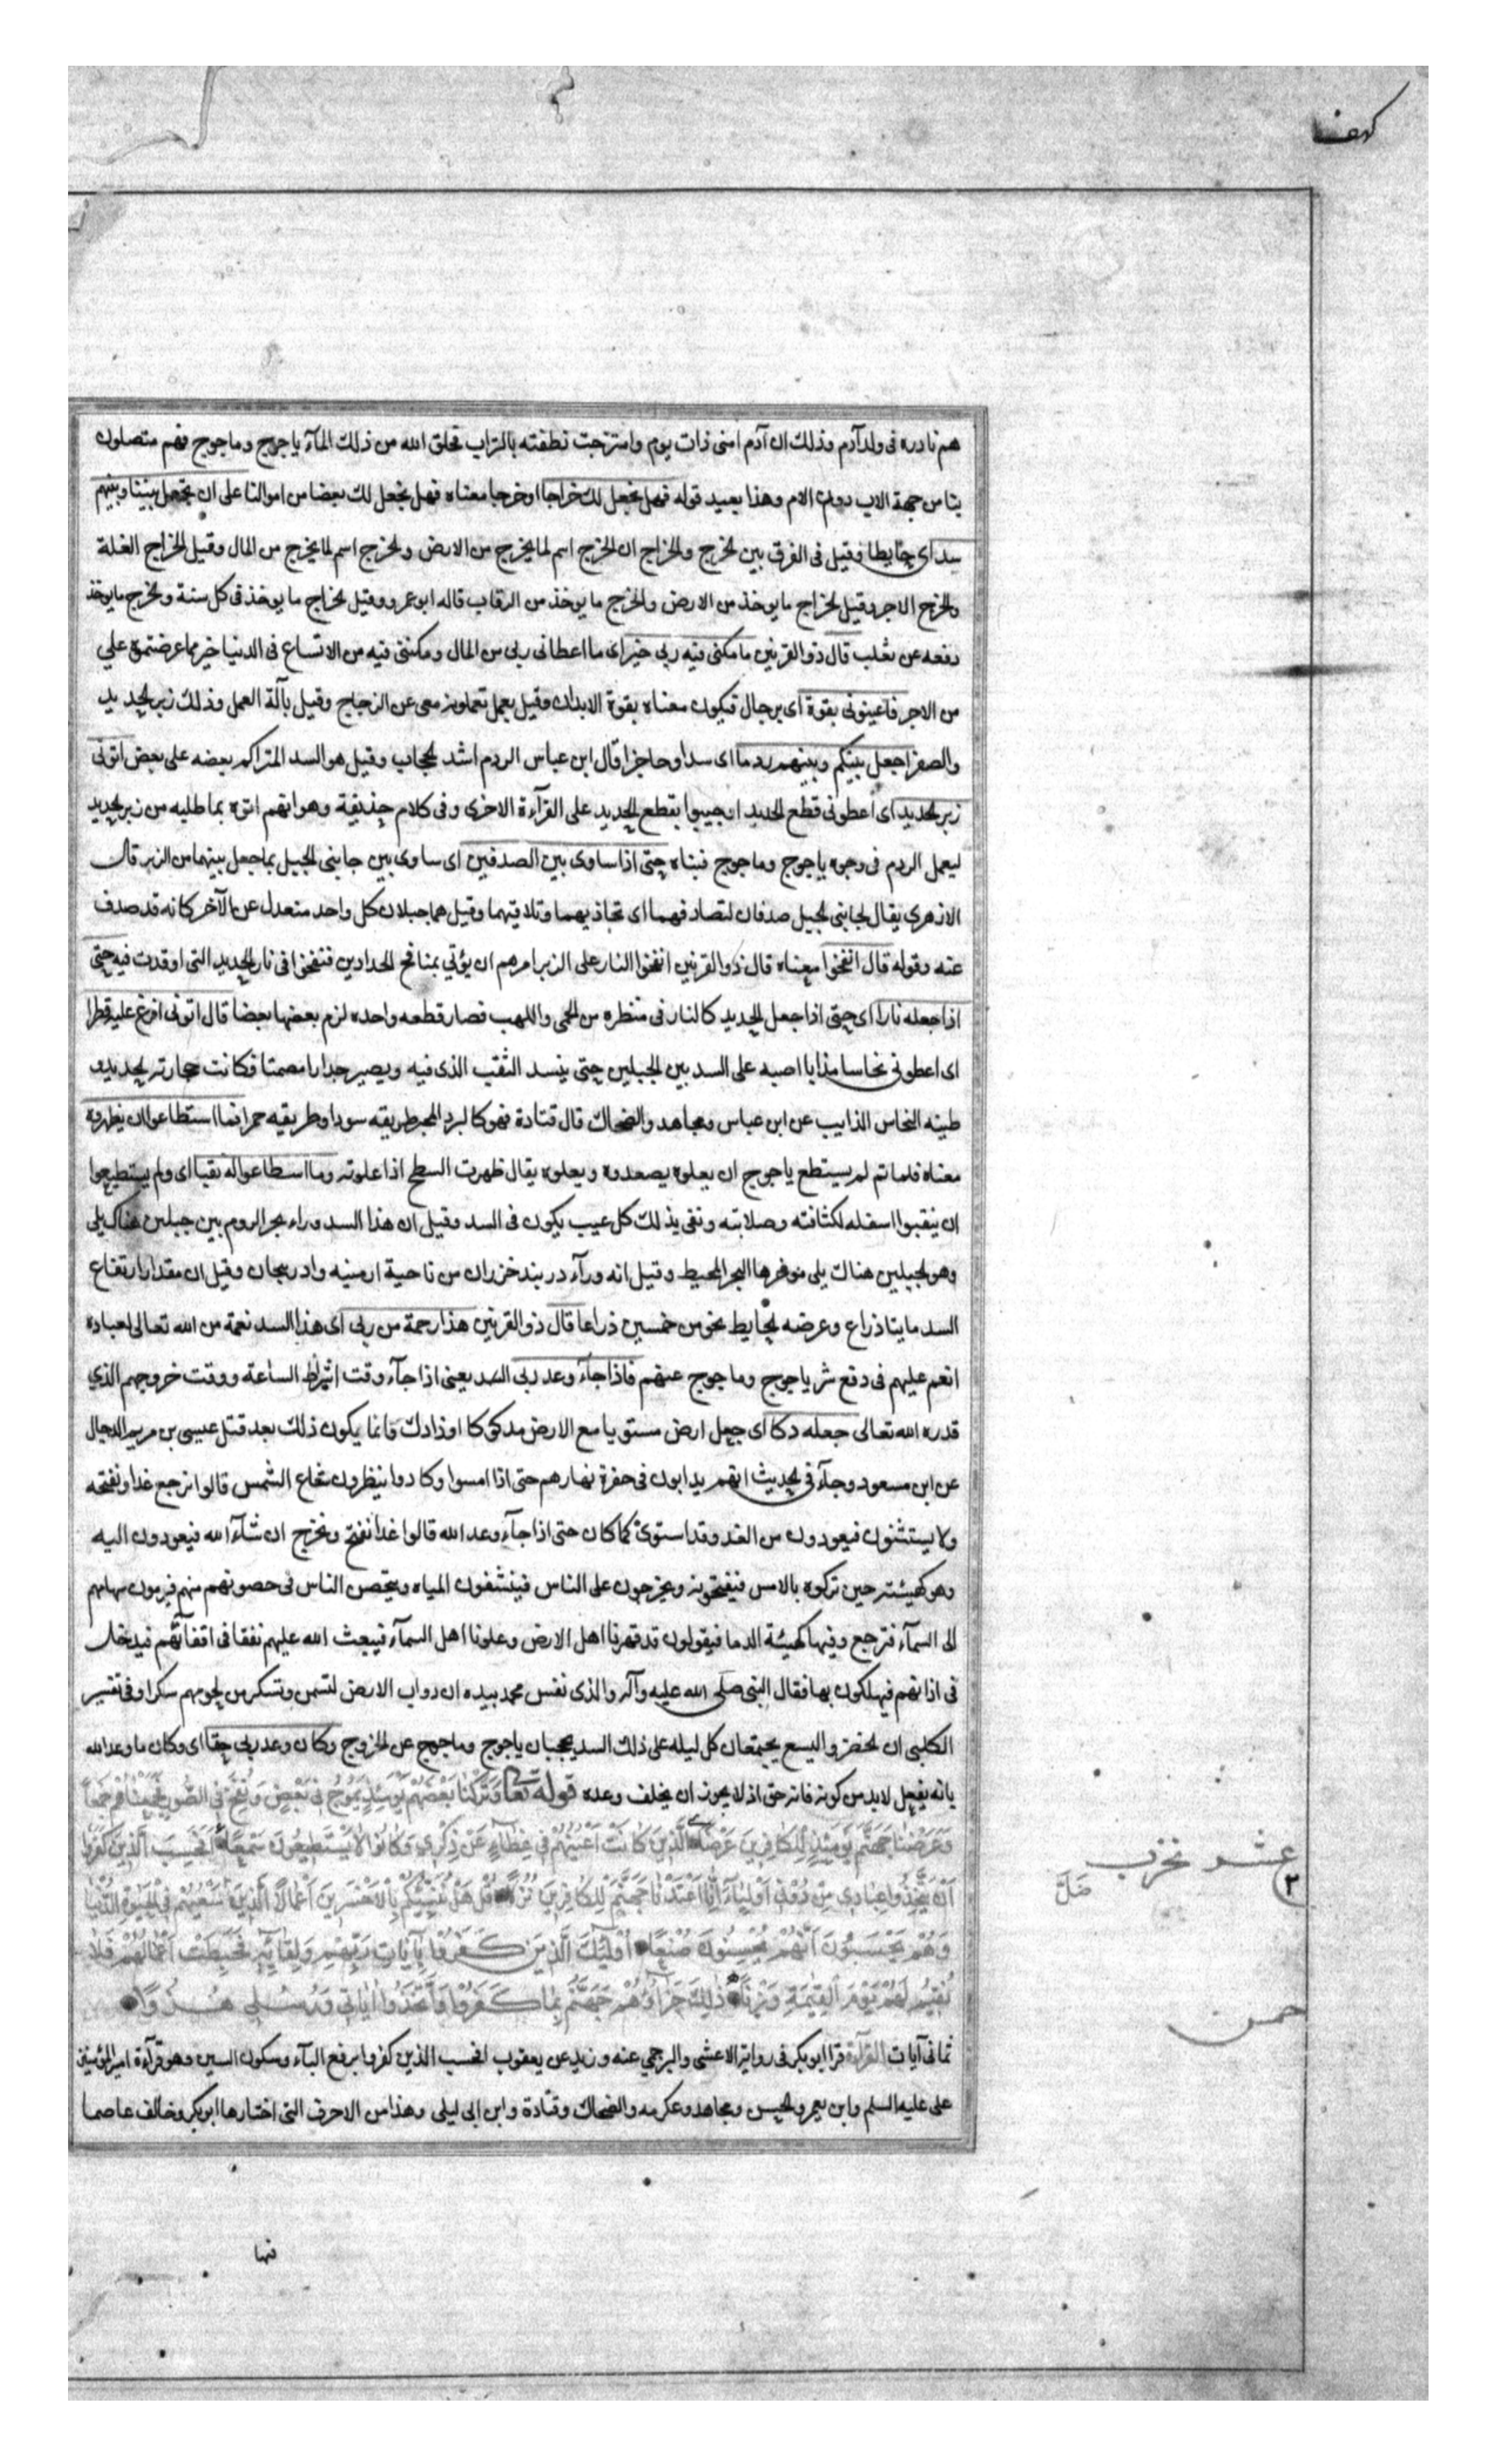 كهف
هم نادره فى ولد آدم وذلك ان آدم امنى ذات يوم وامتزجت نطفته بالتراب فخلق الله من ذلك المآء ياجوج وماجوج فهم متصلون
بنا من جهة الاب دون الام وهذا بعيد قوله فهل نجعل لك خراجا او خرجا معناه فهل نجعل لك بعضا من اموالنا على ان تجعل بيننا وبينهم
سدا اى حايطا وقيل فى الفرق بين الخرج والخراج ان الخرج اسم لما يخرج من الارض والخرج اسم لما يخرج من المال وقيل الخراج الغلة
والخرج الاجر وقيل الخراج ما يوخذ من الارض والخرج ما يوخذ من الرقاب قاله ابو عمرو وقيل الخراج ما يوخذ فى كل سنة والخرج ما يوخذ
دفعه عن ثعلب قال ذو القرنين ما مكنى فيه ربى خير اى ما اعطانى ربى من المال ومكننى فيه من الاتساع فى الدنيا خير مما عرضتموه علي
من الاجر فاعينونى بقوة اى برجال فيكون معناه بقوة الابدان وقيل بعمل تعملونه معى عن الزجاج وقيل بآلة العمل وذلك زبر الحديد
والصفر اجعل بينكم وبينهم ردما اى سدا وحاجزا قال ابن عباس الردم اشد الحجاب وقيل هو السد المتراكم بعضه على بعض اتونى
زبر الحديد اى اعطونى قطع الحديد او جيبوا بقطع الحديد على القرآءة الاخرى وفى كلام حذيفة وهو انهم اتوه بما طلبه من زبر الحديد
ليعمل الردم فى وجوه ياجوج وماجوج فبناه حتى اذا ساوى بين الصدفين اى ساوى بين جانبى الجبل بما جعل بينهما من الزبر قال
الازهرى يقال لجانبى الجبل صدفان لتصادفهما اى تحاذيهما وتلاقيهما وقيل هما جبلان كل واحد منعدل عن الآخر كانه قد صدف
عنه وقوله قال انفخوا معناه قال ذو القرنين انفخوا النار على الزبر امرهم ان يؤتي بمنافخ الحدادين فنفخوا فى نار الحديد التى اوقدت فيه حتى
اذا جعله نارا اى حتى اذا جعل الحديد كالنار فى منظره من الحمى واللهب فصار قطعه واحده لزم بعضها بعضا قال اتونى افرغ عليه قطرا
اى اعطونى نحاسا مذابا اصبه على السد بين الجبلين حتى ينسد الثقب الذى فيه ويصير جدارا مصمتا فكانت حجارته الحديد و
طينه النحاس الذايب عن ابن عباس ومجاهد والضحاك قال قتادة فهو كالبرد المحبر طريقه سودا وطريقه حمرا فما استطاعوا ان يظهروه
معناه فلما تم لم يستطع ياجوج ان يعلوه يصعدوه ويعلوه يقال ظهرت السطح اذا علوته وما اسطاعوا له نقبا اى ولم يستطيعوا
ان ينقبوا اسفله لكثافته وصلابته ونفى بذلك كل عيب يكون فى السد وقيل ان هذا السد وراء بحر الروم بين جبلين هناك يلى
وهو لجبلين هناك يلى موخرها البحر المحيط وقيل انه ورآء دربند خزران من ناحية ارمنيه وادربيجان وقيل ان مقدار ارتفاع
السد مايتا ذراع وعرضه الحايط نحو من خمسين ذراعا قال ذو القرنين هذا رحمة من ربى اى هذا السد نعمة من الله تعالى لعباده
انعم عليهم فى دفع شر ياجوج وماجوج عنهم فاذا جآء وعد ربى السد يعنى اذا جآء وقت اشراط الساعة ووقت خروجهم الذي
قدره الله تعالى جعله دكا اى جعل ارض مستويا مع الارض مدكوكا او ذادك فانما يكون ذلك بعد قتل عيسى بن مريم الدجال
عن ابن مسعود وجآء فى الحديث انهم يدابون فى حفره نهارهم حتى اذا امسوا وكادوا ينظرون شعاع الشمس قالوا نرجع غدا ونفتحه
ولا يستثنون فيعودون من الغد وقد استوى كما كان حتى اذا جآء وعد الله قالوا غدا نفتح ونخرج ان شآء الله فيعودون اليه
وهو كهيئته حين تركوه بالامس فيفتحونه ويخرجون على الناس فينشفون المياه ويتحصن الناس فى حصونهم منهم فيرمون سهامهم
الى السمآء فترجع وفيها كهيئة الدما فيقولون قد قهرنا اهل الارض وعلونا اهل السمآء فيبعث الله عليهم نغفا فى اقفآئهم فيدخل
فى اذانهم فيهلكون بها فقال النبى صلى الله عليه وآله والذى نفس محمد بيده ان دواب الارض لتسمن وتسكر من لحومهم سكرا وفى تفسير
الكلبى ان الخضر واليسع يجتمعان كل ليله على ذلك السد يحجبان ياجوج وماجوج عن الخروج وكان وعد ربى حقا اى وكان ما وعد الله
بانه يفعل لابد من كونه فانه حق اذ لا يجوز ان يخلف وعده قوله تعا وَتَرَكْنَا بَعْضَهُمْ يَوْمَئِذٍ يَمُوجُ فِى بَعْضٍ وَنُفِخَ فِى الصُّورِ فَجَمَعْنَاهُمْ جَمْعًا
وَعَرَضْنَا جَهَنَّمَ يَوْمَئِذٍ لِلْكَافِرِينَ عَرْضًا الَّذِينَ كَانَتْ اَعْيُنُهُمْ فِى غِطَاءٍ عَنْ ذِكْرِي وَكَانُوا لَا يَسْتَطِيعُونَ سَمْعًا اَفَحَسِبَ الَّذِينَ كَفَرُوا
اَنْ يَتَّخِذُوا عِبَادِي مِنْ دُونِى اَوْلِيَاءَ اِنَّا اَعْتَدْنَا جَهَنَّمَ لِلْكَافِرِينَ نُزُلًا قُلْ هَلْ نُنَبِّئُكُمْ بِالْاَخْسَرِينَ اَعْمَالًا اَلَّذِينَ ضَلَّ سَعْيُهُمْ فِى الْحَيٰوةِ الدُّنْيَا
وَهُمْ يَحْسَبُونَ اَنَّهُمْ يُحْسِنُونَ صُنْعًا اُولٰئِكَ الَّذِينَ كَفَرُوا بِآيَاتِ رَبِّهِمْ وَلِقَائِهِ فَحَبِطَتْ اَعْمَالُهُمْ فَلَا
نُقِيمُ لَهُمْ يَوْمَ الْقِيٰمَةِ وَزْنًا ذٰلِكَ جَزَاؤُهُمْ جَهَنَّمُ بِمَا كَفَرُوا وَاتَّخَذُوا اٰيَاتِى وَرُسُلِى هُزُوًا
ثمانى آيات القرآءة قرا ابو بكر فى رواية الاعشى والبرجمي عنه وزيد عن يعقوب افحسب الذين كفروا برفع البآء وسكون السين وهو قرآءة امير المؤمنين
على عليه السلم وابن يعمر والحسن ومجاهد وعكرمه والضحاك وقتادة وابن ابى ليلى وهذا من الاحرف التى اختارها ابو بكر وخالف عاصما
عشر
٢
خمس
فيها